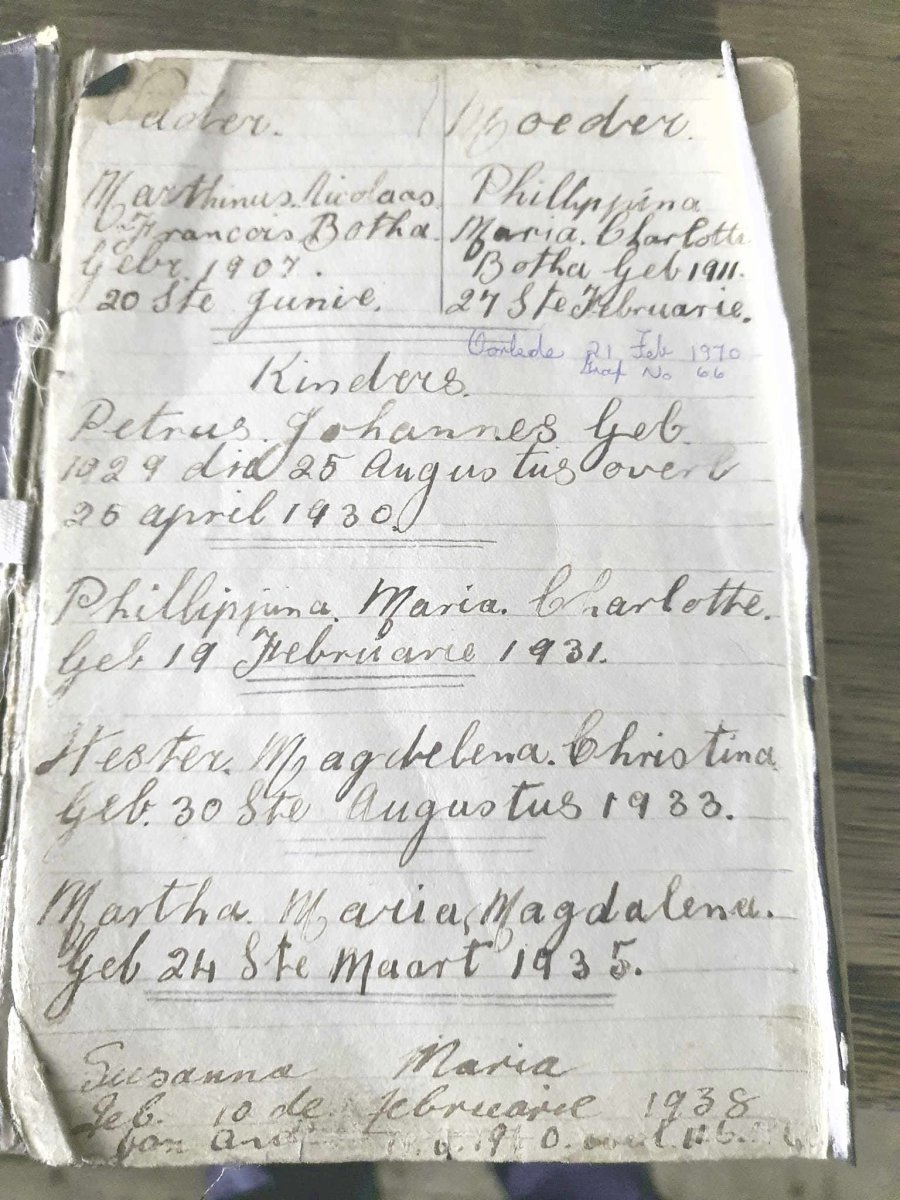 Vader.
Moeder.
Marthinus Nicolaas
Francois Botha.
Gebr. 1907.
20 Ste Junie.
Phillipjina
Maria. Charlotte
Botha Geb 1911.
27 Ste Februarie.
Oorlede 21 Feb 1970
Graf No 66
Kinders.
Petrus. Johannes Geb
1929 die 25 Augustus overl
26 april 1930.
Phillipjina. Maria. Charlotte.
Geb 19 Februarie 1931.
Hester. Magdelena. Christina
Geb. 30 Ste Augustus 1933.
Martha. Maria, Magdalena.
Geb 24 Ste Maart 1935.
Susanna Maria
Geb. 10 de februarie 1938